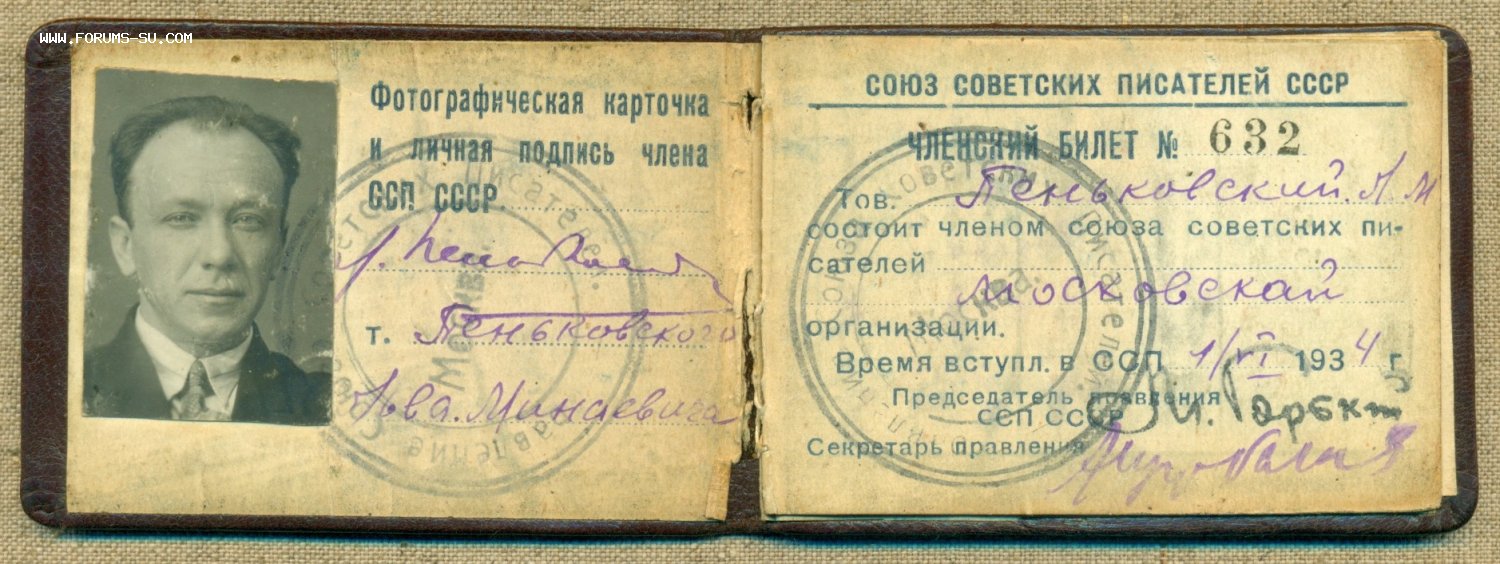 WWW.FORUMS-SU.COM
Фотографическая карточка
и личная подпись члена
ССП СССР
т. Пеньковского
Льва Минаевича
СОЮЗ СОВЕТСКИХ ПИСАТЕЛЕЙ СССР
ЧЛЕНСКИЙ БИЛЕТ № 632
Тов. Пеньковский Л. М
состоит членом союза советских пи-
сателей Московской
организации.
Время вступл. в ССП 1/VI 1934 г
Председатель правления
ССП СССР М. Горький
Секретарь правления
Москва